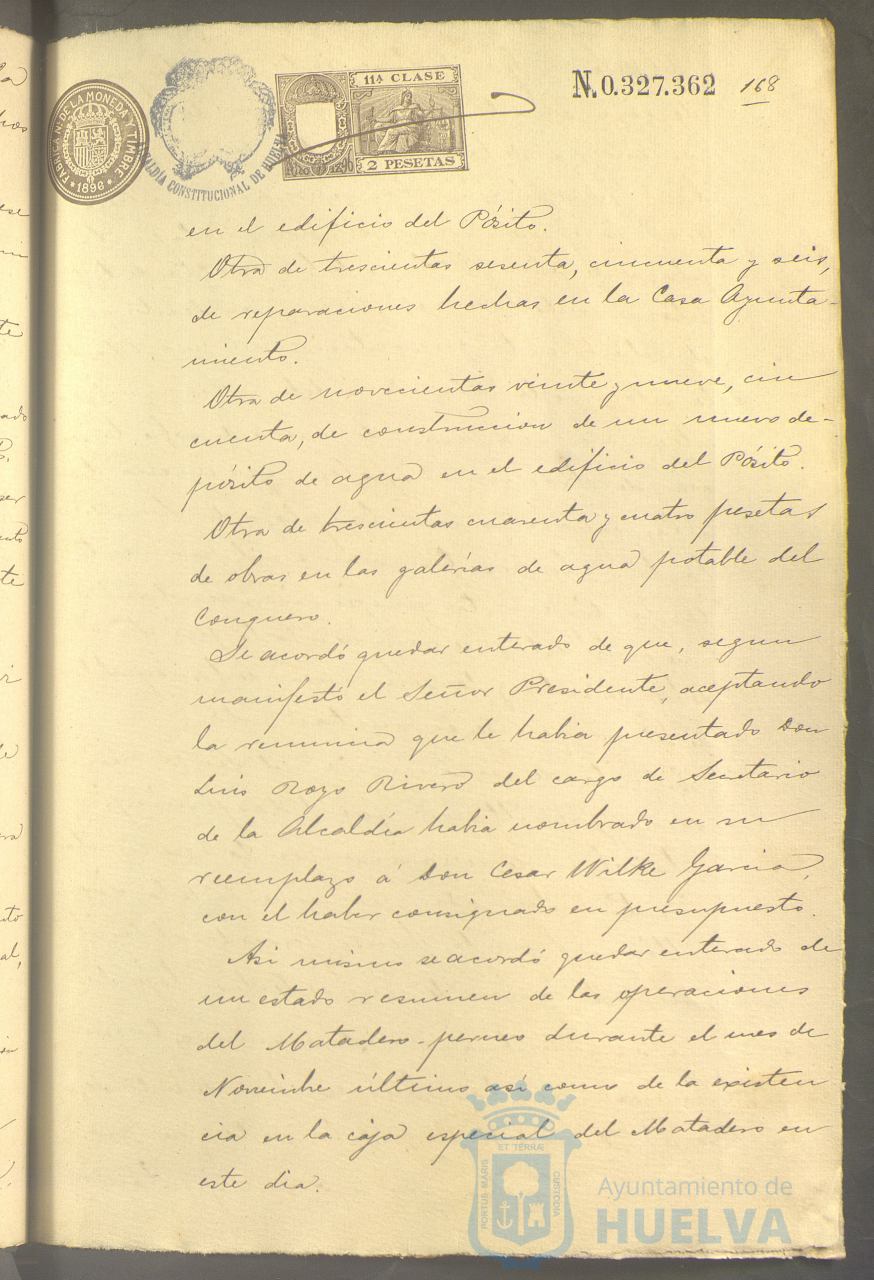 FABRICA Nal DE LA MONEDA Y TIMBRE
1896
ALCALDÍA CONSTITUCIONAL DE HUELVA
11ª CLASE
2 PESETAS
N.0.327.362
168
en el edificio del Pósito.
Otra de trescientas sesenta, cincuenta y seis,
de reparaciones hechas en la Casa Ayunta-
miento.
Otra de novecientas veinte y nueve, cin
cuenta, de construccion de un nuevo de-
pósito de agua en el edificio del Pósito.
Otra de trescientas cuarenta y cuatro pesetas
de obras en las galerías de agua potable del
Conquero.
Se acordó quedar enterado de que, segun
manifestó el Señor Presidente, aceptando
la renuncia que le habia presentado Don
Luis Rozo Rivero del cargo de Secretario
de la Alcaldía habia nombrado en su
reemplazo á Don Cesar Wilke Garcia,
con el haber consignado en presupuesto.
Asi mismo se acordó quedar enterado de
un estado resumen de las operaciones
del Matadero-perneo durante el mes de
Noviembre último así como de la existen
cia en la caja especial del Matadero en
este dia.
ET TERRÆ
PORTUS MARIS
CUSTODIA
Ayuntamiento de
HUELVA